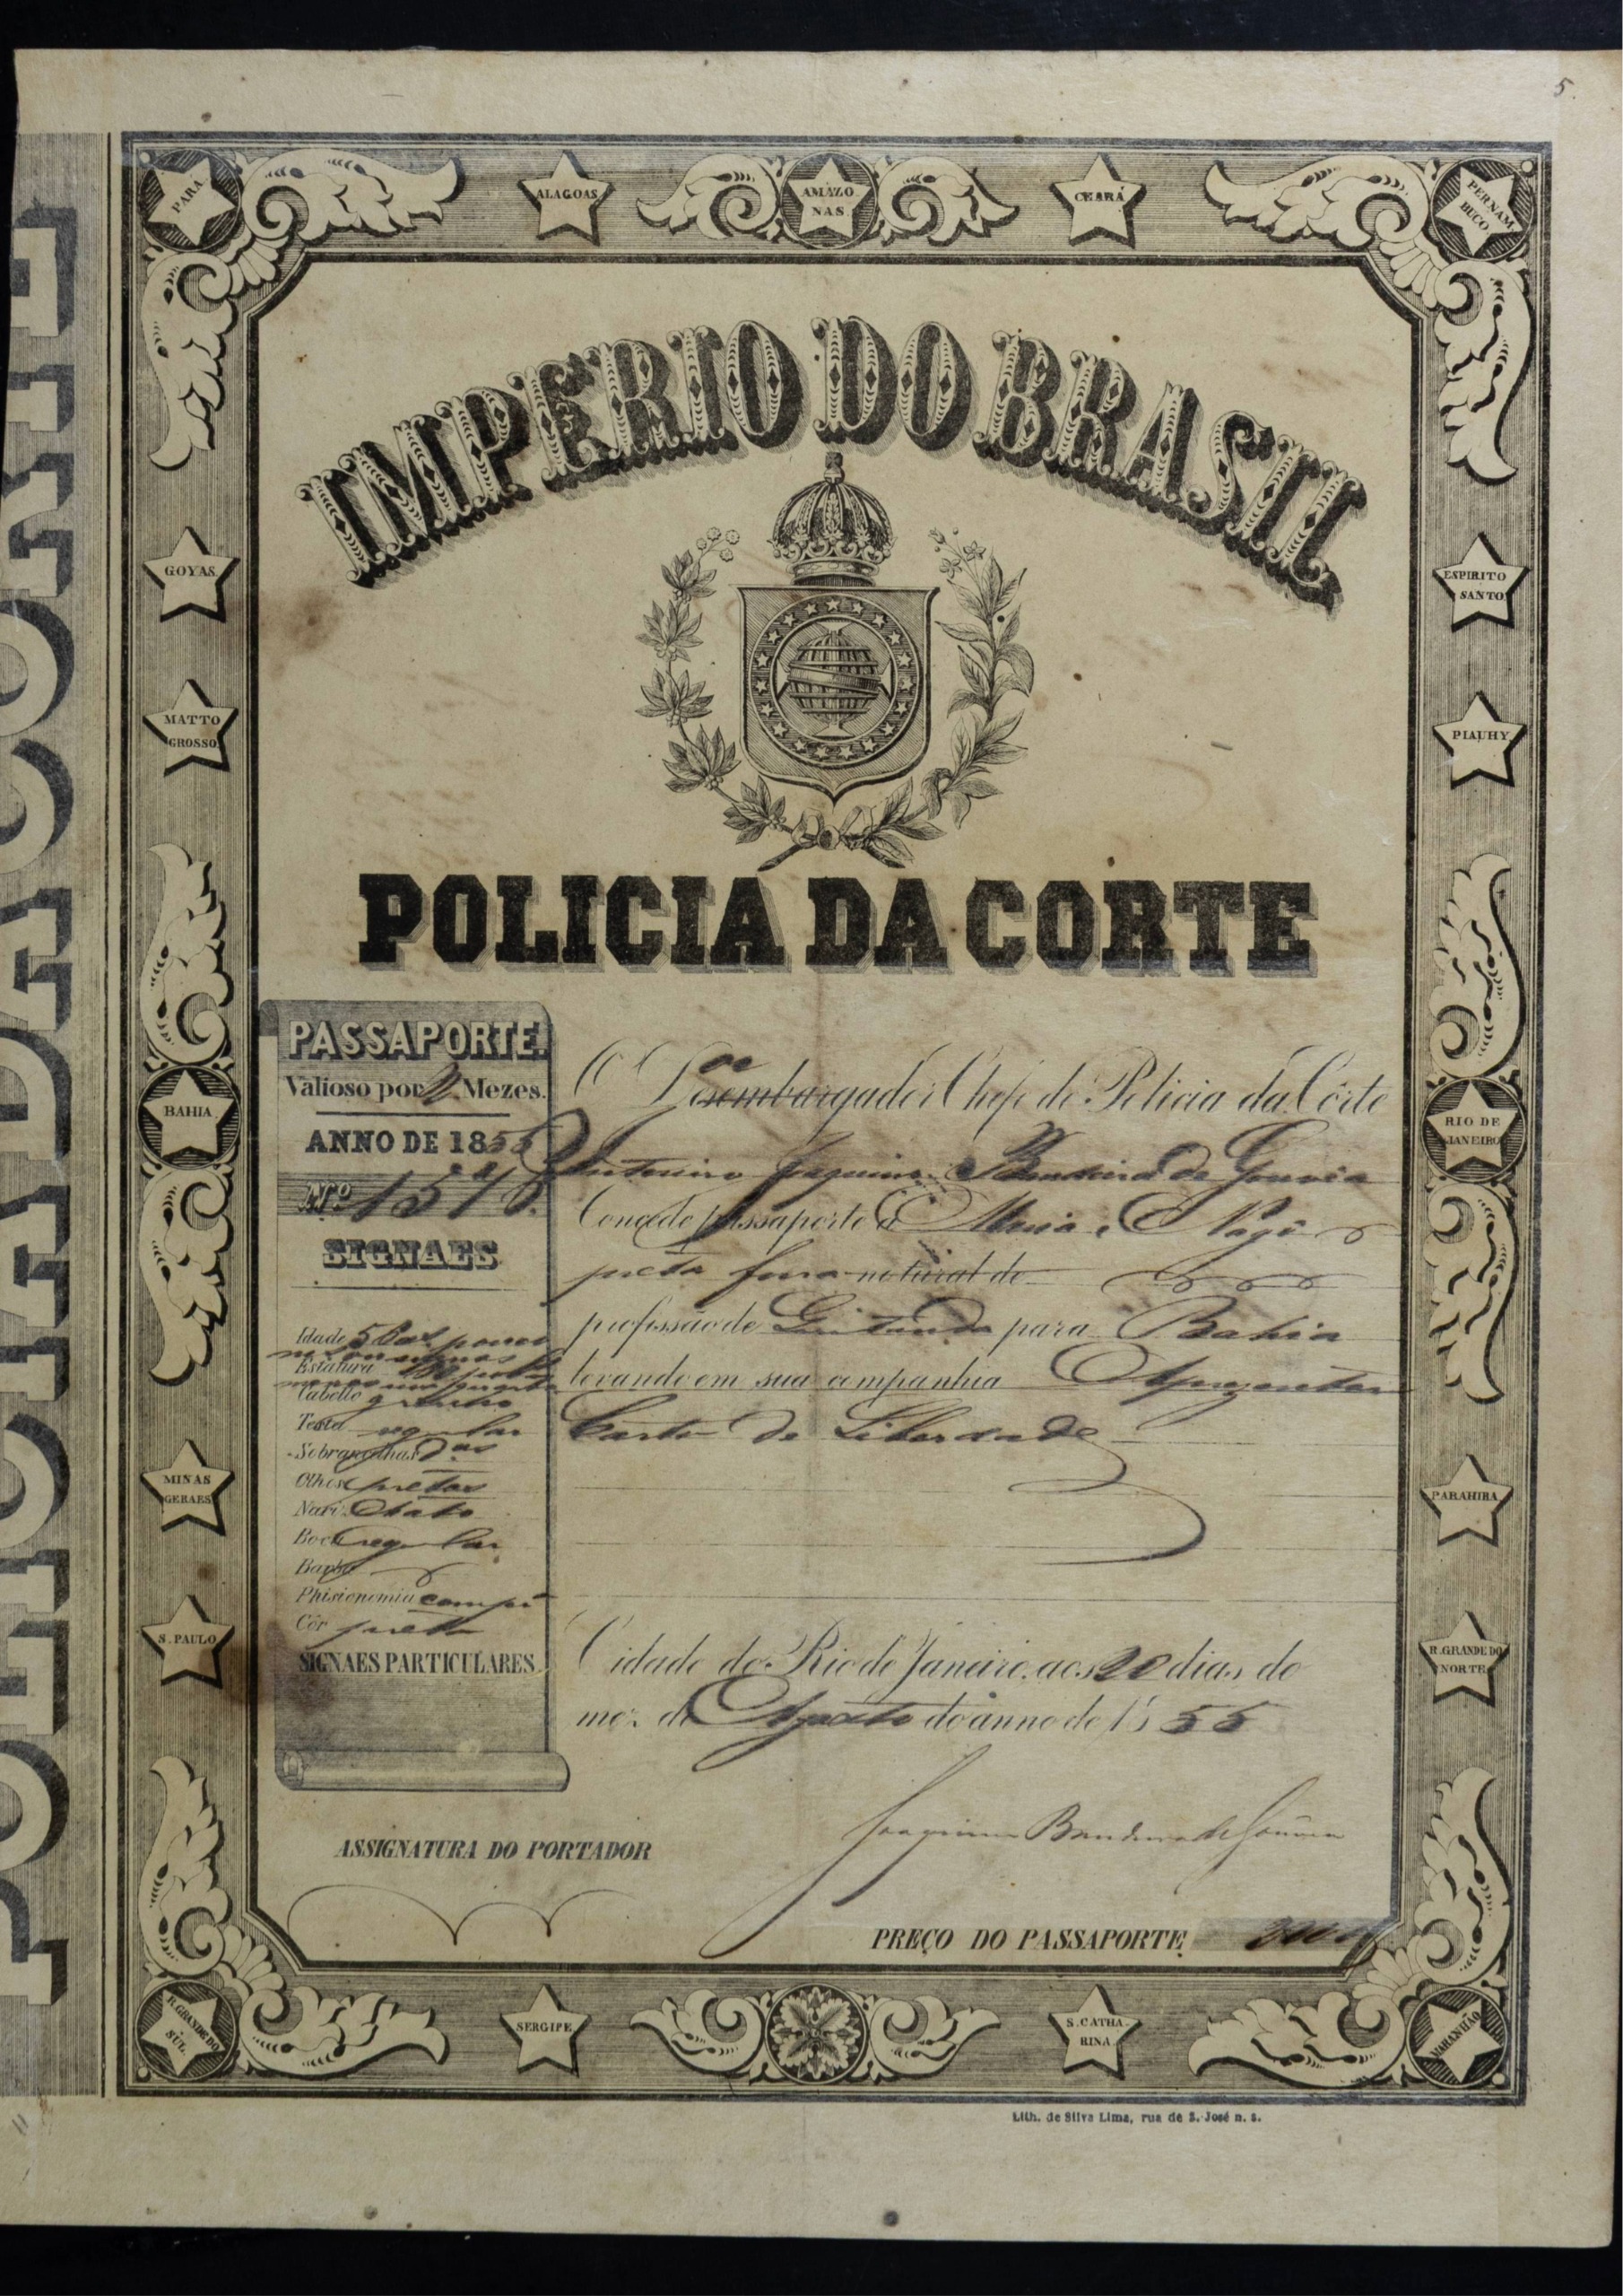 5.
PARA
ALAGOAS
AMAZO
NAS
CEARÁ
PERNAM
BUCO
IMPERIO DO BRASIL
GOYAS
ESPIRITO
SANTO
MATTO
GROSSO
PIAUHY
POLICIA DA CORTE
PASSAPORTE.
Valioso por 2 Mezes.
ANNO DE 1855
Nº 1518.
SIGNAES
BAHIA
RIO DE
JANEIRO
O Desembargador Chefe de Policia da Côrte
Joaquim Bandeira de Gouvêa
Concede passaporte a Maria Nagô
preta forra natural de
profissão de Quitanda para Bahia
levando em sua companhia Aprezentou
Carta de Liberdade
Idade 50 as pouco
Estatura
Cabello
Testa regular
Sobrancelhas das
Olhos pretos
Nariz Chato
Boca regular
Barba
Phisionomia comprida
Côr preta
SIGNAES PARTICULARES
MINAS
GERAES
PARAHIBA
S. PAULO
R. GRANDE DO
NORTE
Cidade do Rio de Janeiro, aos 20 dias do
mez de Agosto do anno de 1855
Joaquim Bandeira de Gouvêa
ASSIGNATURA DO PORTADOR
PREÇO DO PASSAPORTE
R. GRANDE DO
SUL
SERGIPE
S. CATHA
RINA
MARANHÃO
Lith. de Silva Lima, rua de S. José n. 8.
POLICIA DA CORTE